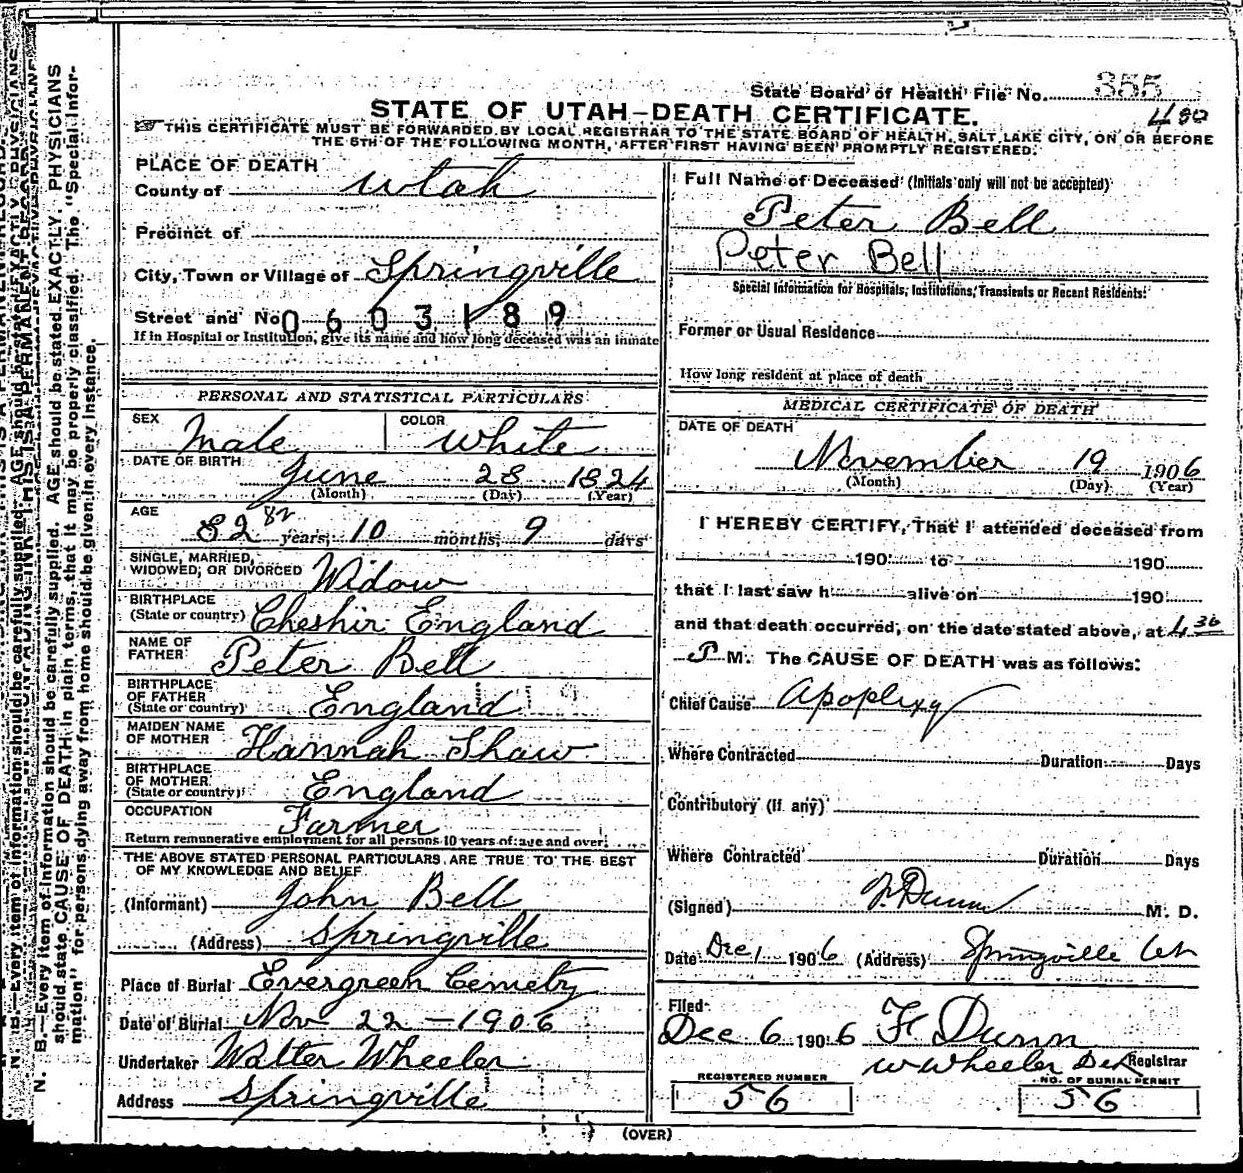 State Board of Health File No. 355
STATE OF UTAH—DEATH CERTIFICATE.
480
THIS CERTIFICATE MUST BE FORWARDED BY LOCAL REGISTRAR TO THE STATE BOARD OF HEALTH, SALT LAKE CITY, ON OR BEFORE
THE 5TH OF THE FOLLOWING MONTH, AFTER FIRST HAVING BEEN PROMPTLY REGISTERED.
PLACE OF DEATH
County of Utah
Precinct of
City, Town or Village of Springville
Street and No. 0603189
If in Hospital or Institution, give its name and how long deceased was an inmate
PERSONAL AND STATISTICAL PARTICULARS
SEX Male COLOR White
DATE OF BIRTH June 28 1824
(Month) (Day) (Year)
AGE 82 82 years, 10 months, 9 days
SINGLE, MARRIED,
WIDOWED, OR DIVORCED Widow
BIRTHPLACE
(State or country) Cheshir England
NAME OF
FATHER Peter Bell
BIRTHPLACE
OF FATHER
(State or country) England
MAIDEN NAME
OF MOTHER Hannah Shaw
BIRTHPLACE
OF MOTHER
(State or country) England
OCCUPATION Farmer
Return remunerative employment for all persons 10 years of age and over.
THE ABOVE STATED PERSONAL PARTICULARS ARE TRUE TO THE BEST
OF MY KNOWLEDGE AND BELIEF
(Informant) John Bell
(Address) Springville
Place of Burial Evergreen Cemetry
Date of Burial Nov 22 - 1906
Undertaker Walter Wheeler
Address Springville
Full Name of Deceased (Initials only will not be accepted)
Peter Bell
Peter Bell
Special Information for Hospitals, Institutions, Transients or Recent Residents:
Former or Usual Residence
How long resident at place of death
MEDICAL CERTIFICATE OF DEATH
DATE OF DEATH
November 19 1906
(Month) (Day) (Year)
I HEREBY CERTIFY, That I attended deceased from
190 to 190
that I last saw h alive on 190
and that death occurred, on the date stated above, at 4 30
P M. The CAUSE OF DEATH was as follows:
Chief Cause Apoplexy
Where Contracted Duration Days
Contributory (if any)
Where Contracted Duration Days
(Signed) F Dunn M. D.
Date Dec 1 1906 (Address) Springville Ut
Filed
Dec 6 1906 F. Dunn
W Wheeler Dep Registrar
REGISTERED NUMBER
56
NO. OF BURIAL PERMIT
56
(OVER)
N. B.—Every item of information should be carefully supplied. AGE should be stated EXACTLY. PHYSICIANS
should state CAUSE OF DEATH in plain terms, that it may be properly classified. The "Special Infor-
mation" for persons dying away from home should be given in every instance.